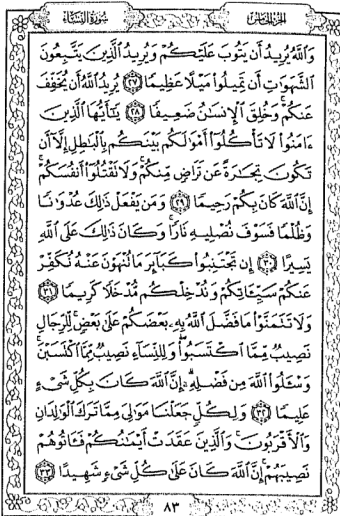 الجزء الخامس
سورة النساء
وَاللَّهُ يُرِيدُ أَن يَتُوبَ عَلَيْكُمْ وَيُرِيدُ الَّذِينَ يَتَّبِعُونَ
الشَّهَوَاتِ أَن تَمِيلُوا مَيْلًا عَظِيمًا ٢٧ يُرِيدُ اللَّهُ أَن يُخَفِّفَ
عَنكُمْ وَخُلِقَ الْإِنسَانُ ضَعِيفًا ٢٨ يَٰٓأَيُّهَا الَّذِينَ
ءَامَنُوا لَا تَأْكُلُوٓا أَمْوَٰلَكُم بَيْنَكُم بِالْبَٰطِلِ إِلَّآ أَن
تَكُونَ تِجَٰرَةً عَن تَرَاضٍ مِّنكُمْ وَلَا تَقْتُلُوٓا أَنفُسَكُمْ
إِنَّ اللَّهَ كَانَ بِكُمْ رَحِيمًا ٢٩ وَمَن يَفْعَلْ ذَٰلِكَ عُدْوَٰنًا
وَظُلْمًا فَسَوْفَ نُصْلِيهِ نَارًا وَكَانَ ذَٰلِكَ عَلَى اللَّهِ
يَسِيرًا ٣٠ إِن تَجْتَنِبُوا كَبَآئِرَ مَا تُنْهَوْنَ عَنْهُ نُكَفِّرْ
عَنكُمْ سَيِّـَٔاتِكُمْ وَنُدْخِلْكُم مُّدْخَلًا كَرِيمًا ٣١
وَلَا تَتَمَنَّوْا مَا فَضَّلَ اللَّهُ بِهِۦ بَعْضَكُمْ عَلَىٰ بَعْضٍ لِّلرِّجَالِ
نَصِيبٌ مِّمَّا اكْتَسَبُوا وَلِلنِّسَآءِ نَصِيبٌ مِّمَّا اكْتَسَبْنَ
وَسْـَٔلُوا اللَّهَ مِن فَضْلِهِۦٓ إِنَّ اللَّهَ كَانَ بِكُلِّ شَىْءٍ
عَلِيمًا ٣٢ وَلِكُلٍّ جَعَلْنَا مَوَٰلِىَ مِمَّا تَرَكَ الْوَٰلِدَانِ
وَالْأَقْرَبُونَ وَالَّذِينَ عَقَدَتْ أَيْمَٰنُكُمْ فَـَٔاتُوهُمْ
نَصِيبَهُمْ إِنَّ اللَّهَ كَانَ عَلَىٰ كُلِّ شَىْءٍ شَهِيدًا ٣٣
٨٣